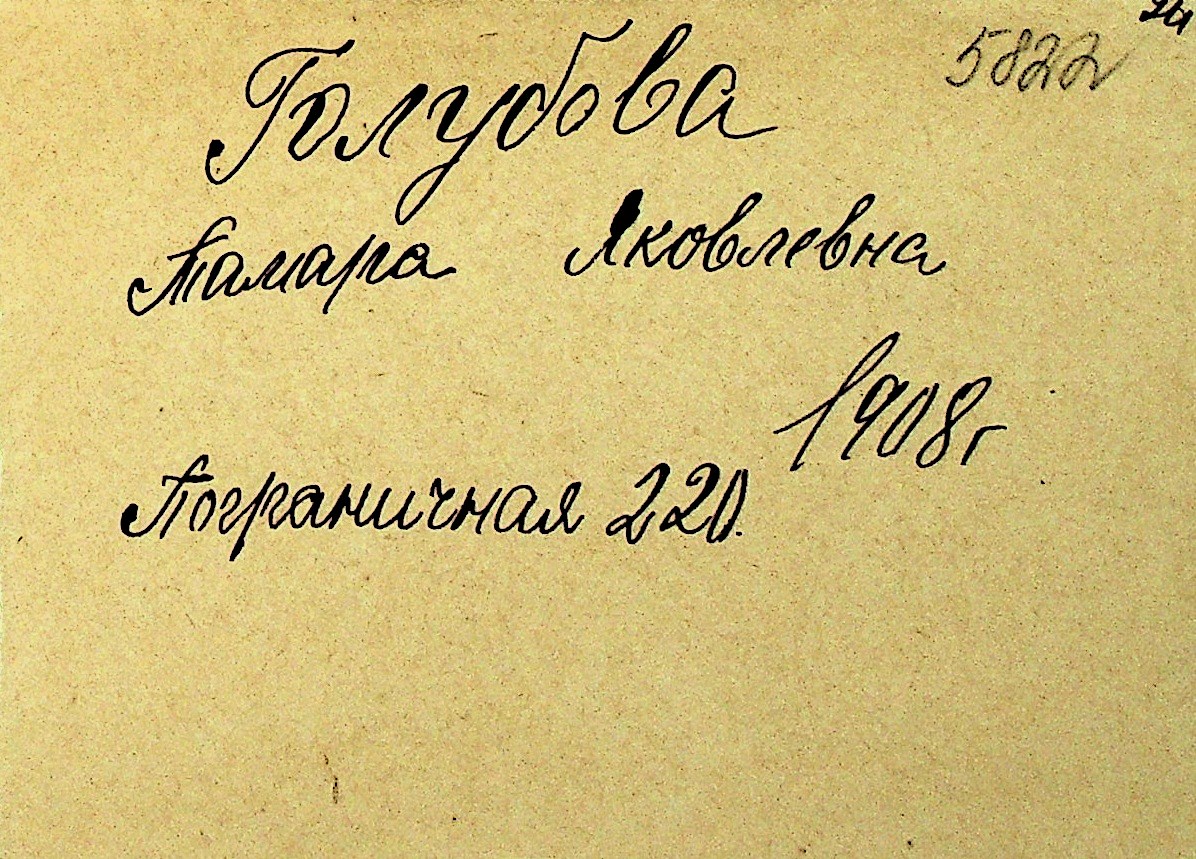 5822
Голубова
Тамара Яковлевна
1908г
Пограничная 220.